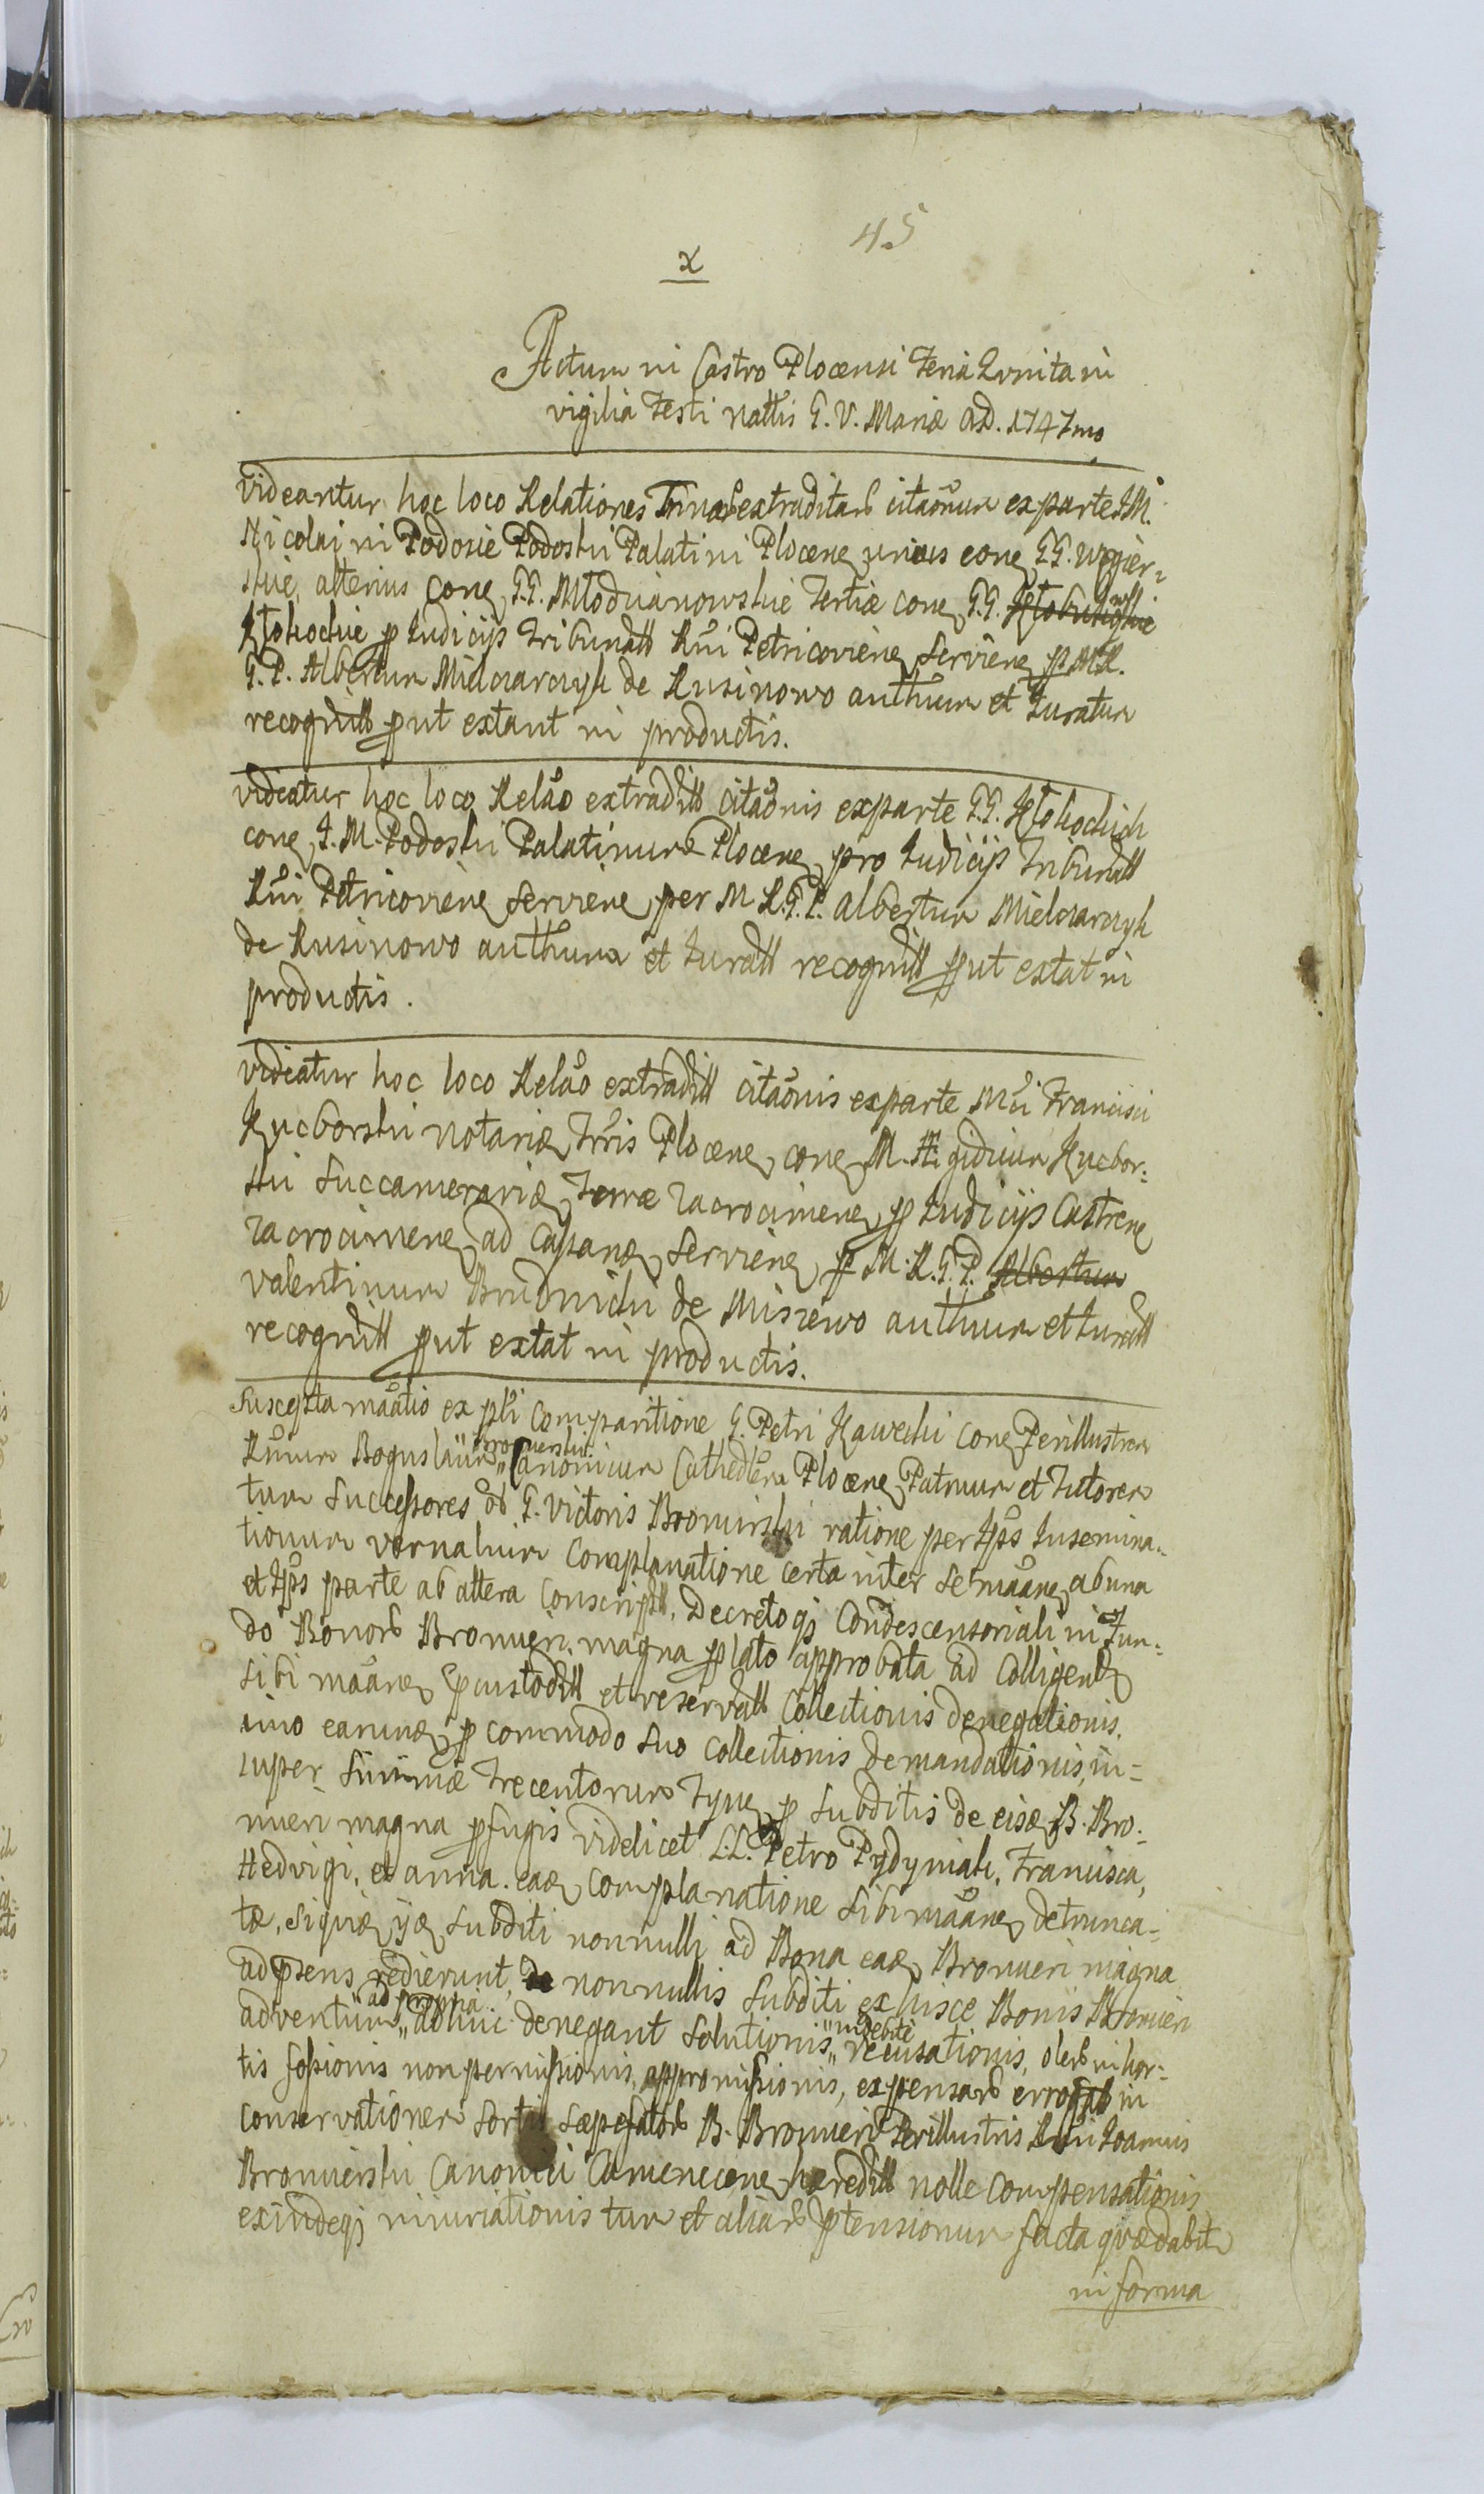 45
x
Actum in Castro Plocensi Feria Quinta in
vigilia Festi nattis G. V. Mariæ AD. 1747mo
Videantur hoc loco Relationes Trinar extraditar citaonum exparte J.M.
Nicolai in Podosie Podoski Palatini Plocen unius con GG. Węgier-
skie, alterius Con G.G. Młodzianowskie Tertiæ con G.G.
Kłokockie p Iudicijs Tribunall Rni Petricovien Servien p M.R.
G.P. Albertum Mielczarczyk de Rusinowo authum et Juratum
recognitt put extant in productis.
Videatur hoc loco Relao extraditt Citaonis exparte G.G. Kłokockich
con J.M. Podoski Palatinum Plocen pro Iudicijs Tribunall
Rni Petricovien Servien per M R.G.P. Albertum Mielczarczyk
de Rusinowo authum et Juratt recognitt put extat in
productis.
Videatur hoc loco Relao extraditt citaonis exparte Mci Francisci
Kucborski notarij Trris Plocen con M. Ægidium Kucbor-
ski Succamerariæ Terræ Zacrocimen p Iudicijs Castren
Zacrocimen ad Cassan Servien p M.R.G.P. Albertum
Valentinum Brudnicki de Miszewo authum et Juratt
recognitt put extat in productis.
Suscepta maatio ex psli Comparitione G. Petri Kawecki con Perillustrem
Rmum Boguslaum Bromierski Canonicum Cathedlem Plocen Patruum et Tutorem
tum Successores G. Victoris Bromirski ratione per Ipsos Insemina-
tionum vernalium Complanatione certa inter se maan ab una
et Ipsos parte ab altera Conscript, Decretoqj Condescensoriali in Fun-
do Bonor Bromierz magna plato approbata ad Colligend
sibi maan pcustoditt et reservatt Collectionis denegationis,
imo earund p commodo suo Collectionis demandationis, in-
super Summæ Trecentorum Tynf p Subditis de eisd B. Bro-
mierz magna pfugis videlicet L.L. Petro Pydyniak, Francisca,
Hedvigi, et anna. ead Complanatione sibi maan detrunca-
tæ, siquid ijd Subditi nonnulli ad Bona ead Bromierz magna
adpræsens redierunt, de nonnullis Subditi ex hisce Bonis Bromierz
adventum adhuc denegant Solutionis indebite recusationis, oler in hor-
tis fossionis non permissionis, appromissionis, expensar errogat in
conservationem sæpefator B. Bromierz Perillustris Rmi Joannis
Bromierski Canonici Camenecen hæreditt nolle Compensationis
exindeqj iniuriationis tum et aliar ptensionum facta quædabit
in forma